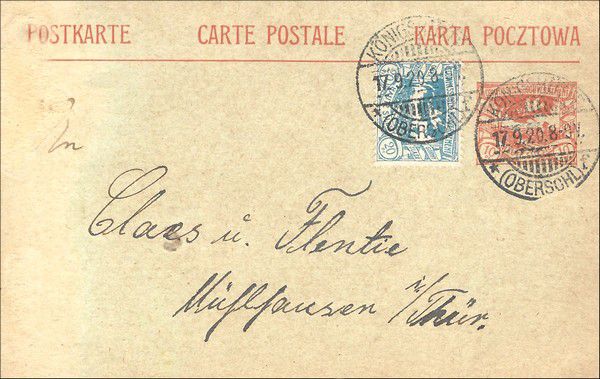 POSTKARTE CARTE POSTALE KARTA POCZTOWA
17.9.20.8-9V.
* (OBERSCHL)
17.9.20.8-9V.
* (OBERSCHL)
30
10 10
In
Claes u. Flentje
Mühlhausen i/Thür.